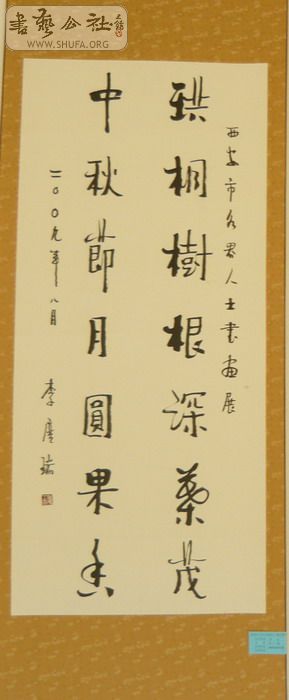 書藝公社
WWW.SHUFA.ORG
西安市各界人士書畫展
珙桐樹根深葉茂
中秋節月圓果香
二〇〇九年八月
李